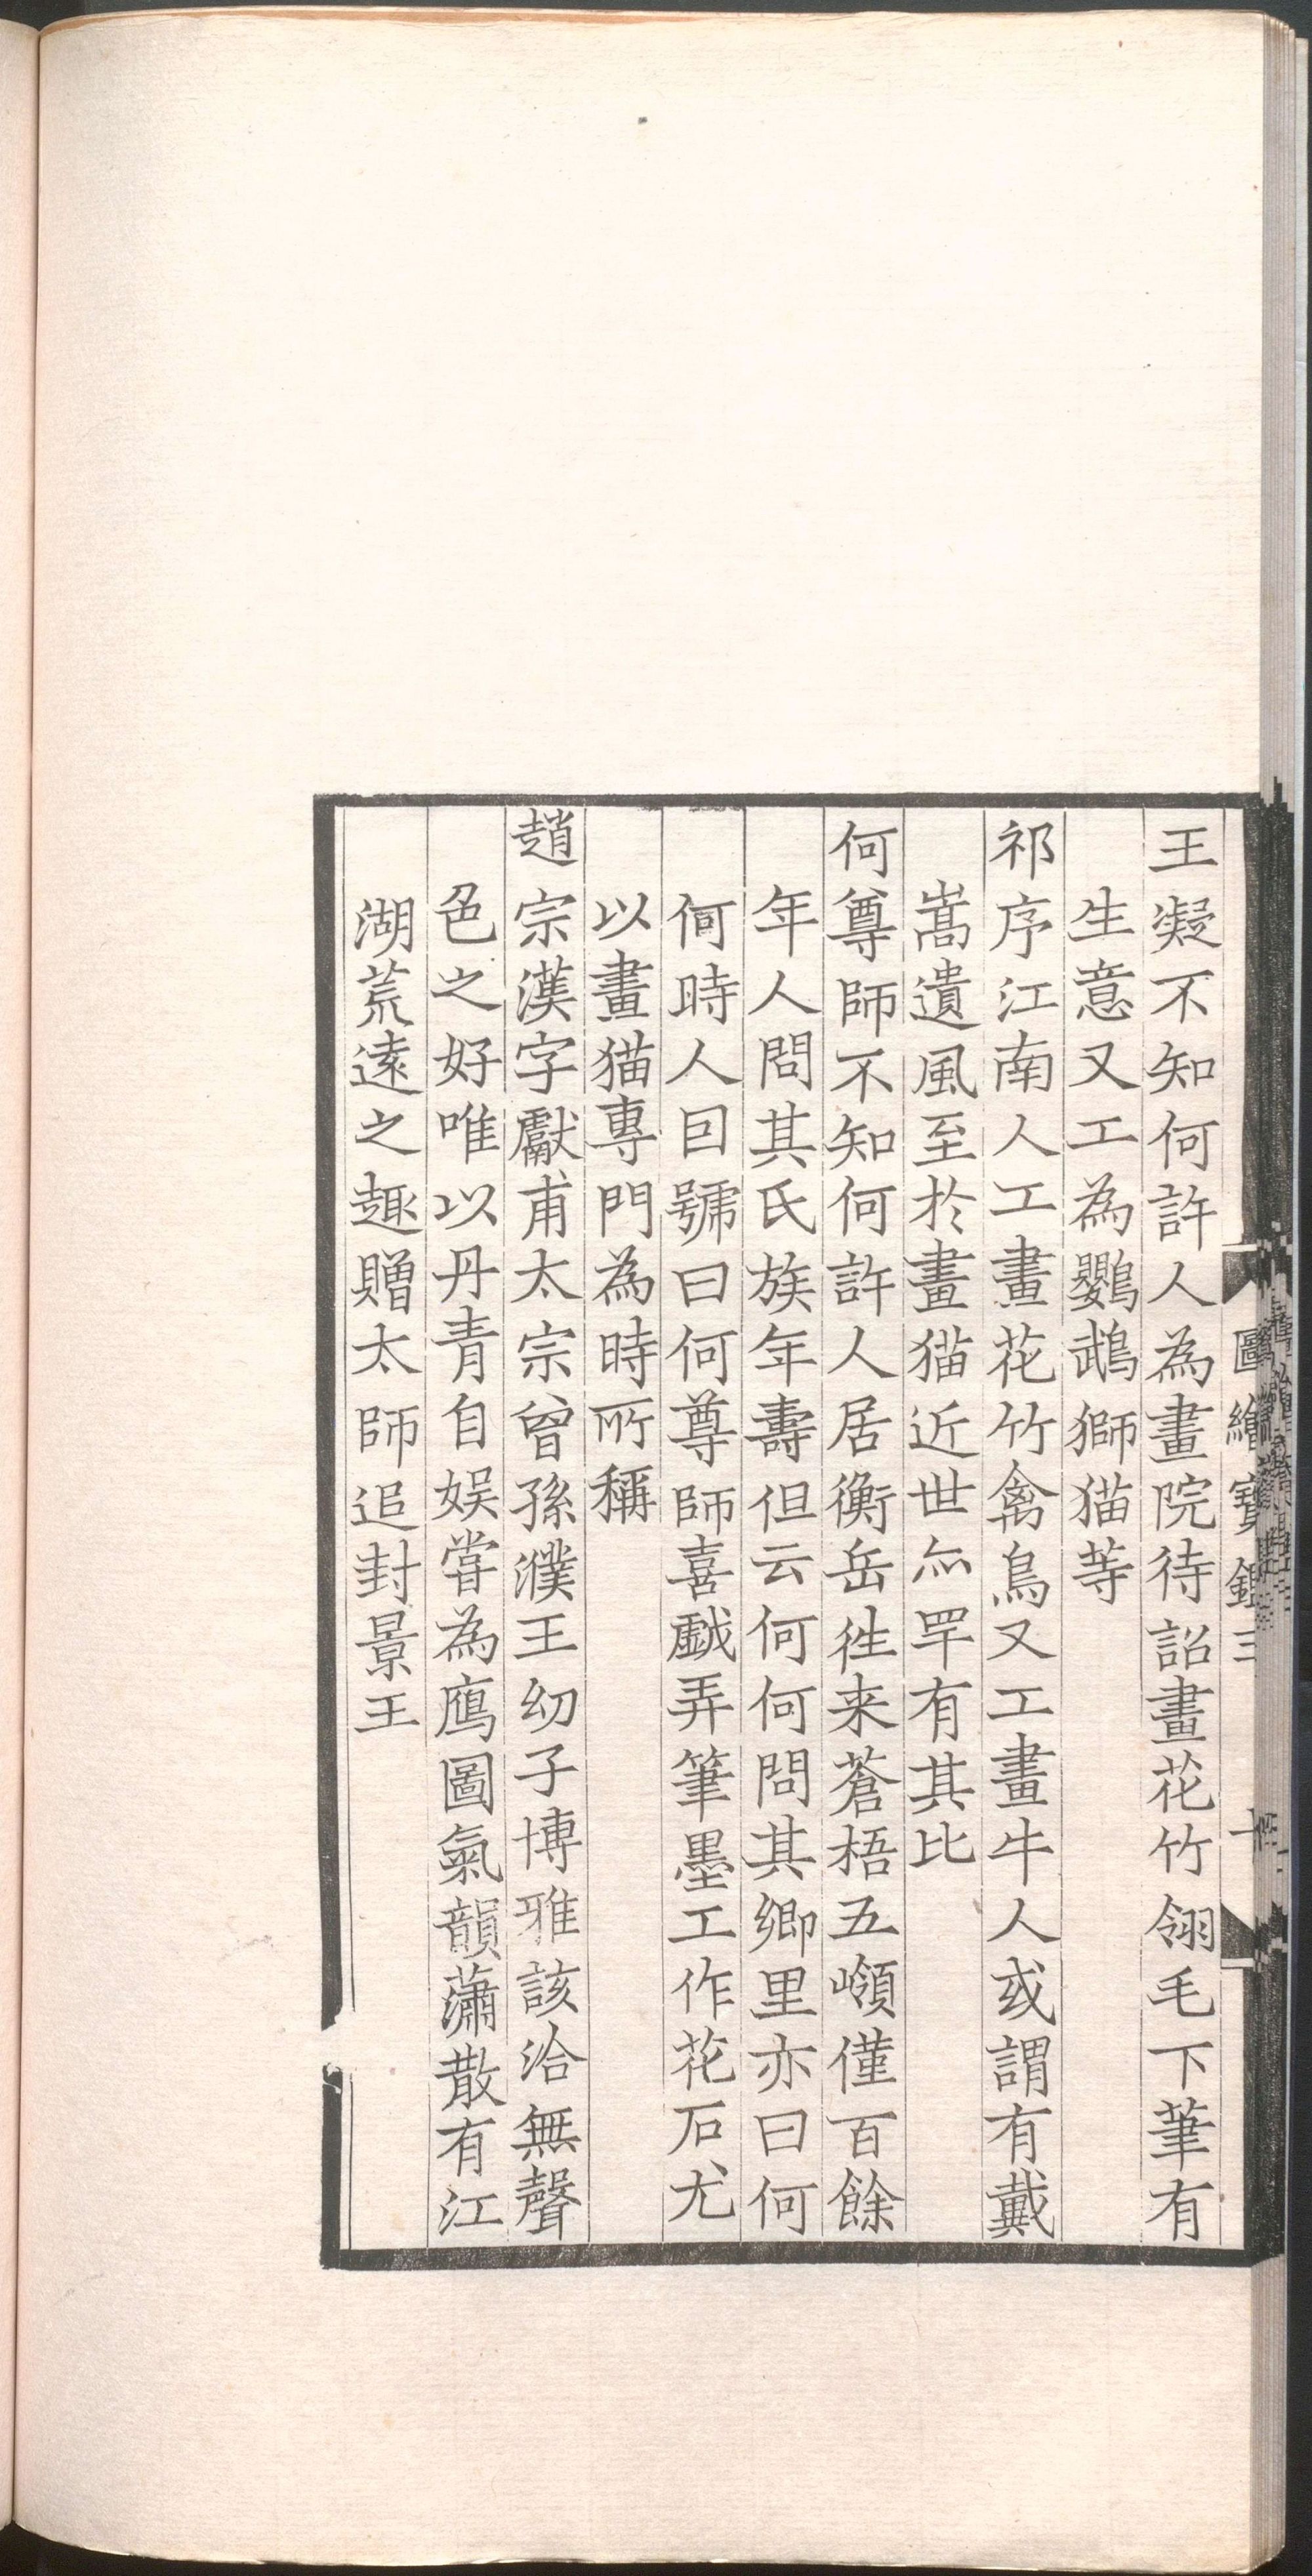 圖繪寶鑑三
王凝不知何許人為畫院待詔畫花竹翎毛下筆有
生意又工為鸚鵡獅猫等
祁序江南人工畫花竹禽鳥又工畫牛人或謂有戴
嵩遺風至於畫猫近世亦罕有其比
何尊師不知何許人居衡岳徃来蒼梧五嶺僅百餘
年人問其氏族年壽但云何何問其鄉里亦曰何
何時人囙號曰何尊師喜戯弄筆墨工作花石尤
以畫猫專門為時所稱
趙宗漢字獻甫太宗曾孫濮王幼子博雅該洽無聲
色之好唯以丹青自娱甞為鴈圖氣韻蕭散有江
湖荒遠之趣贈太師追封景王